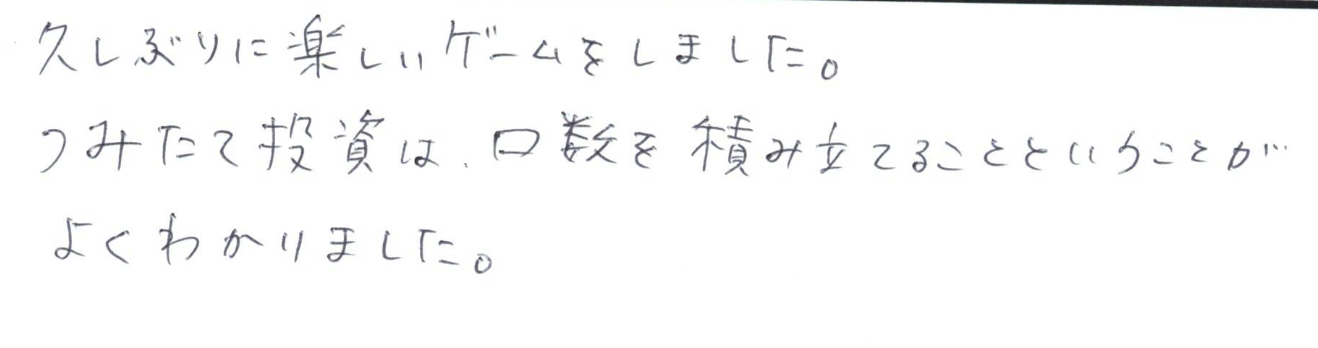 久しぶりに楽しいゲームをしました。
つみたて投資は、口数を積み立てることということが
よくわかりました。